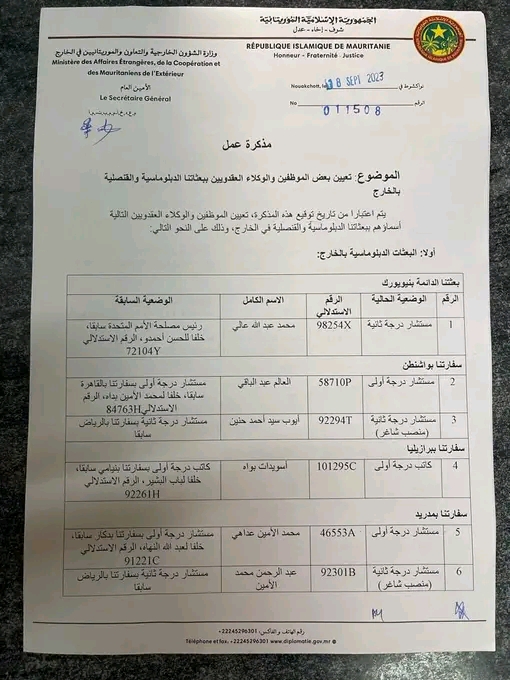 الجمهورية الإسلامية الموريتانية
شرف - إخاء - عدل
RÉPUBLIQUE ISLAMIQUE DE MAURITANIE
Honneur - Fraternité - Justice
وزارة الشؤون الخارجية والتعاون والموريتانيين في الخارج
Ministère des Affaires Étrangères, de la Coopération et
des Mauritaniens de l'Extérieur
الأمين العام
Le Secrétaire Général
Nouakchott, le 18 SEPT 2023 نواكشوط في
No 011508 الرقم
مذكرة عمل
الموضوع: تعيين بعض الموظفين والوكلاء العقدويين ببعثاتنا الدبلوماسية والقنصلية
بالخارج
يتم اعتبارا من تاريخ توقيع هذه المذكرة، تعيين الموظفين والوكلاء العقدويين التالية
أسماؤهم ببعثاتنا الدبلوماسية والقنصلية في الخارج، وذلك على النحو التالي:
أولا: البعثات الدبلوماسية بالخارج:
بعثتنا الدائمة بنيويورك
الرقم الوضعية الحالية الرقم الاستدلالي الاسم الكامل الوضعية السابقة
1 مستشار درجة ثانية 98254X محمد عبد الله عالي رئيس مصلحة الأمم المتحدة سابقا،
خلفا للحسن أحمدو، الرقم الاستدلالي
72104Y
سفارتنا بواشنطن
2 مستشار درجة أولى 58710P العالم عبد الباقي مستشار درجة أولى بسفارتنا بالقاهرة
سابقا، خلفا لمحمد الأمين بداه، الرقم
الاستدلالي 84763H
3 مستشار درجة ثانية 92294T أيوب سيد أحمد حنين مستشار درجة ثانية بسفارتنا بالرياض
(منصب شاغر) سابقا
سفارتنا ببرازيليا
4 كاتب درجة أولى 101295C اسويدات بواه كاتب درجة أولى بسفارتنا بنيامي سابقا،
خلفا لباب البشير، الرقم الاستدلالي
92261H
سفارتنا بمدريد
5 مستشار درجة أولى 46553A محمد الأمين عداهي مستشار درجة أولى بسفارتنا بدكار سابقا،
خلفا لعبد الله النهاه، الرقم الاستدلالي
91221C
6 مستشار درجة ثانية 92301B عبد الرحمن محمد مستشار درجة ثانية بسفارتنا بالرياض
(منصب شاغر) الأمين سابقا
رقم الهاتف والفاكس: 22245296301+
Téléphone et fax: +22245296301 - www.diplomatie.gov.mr